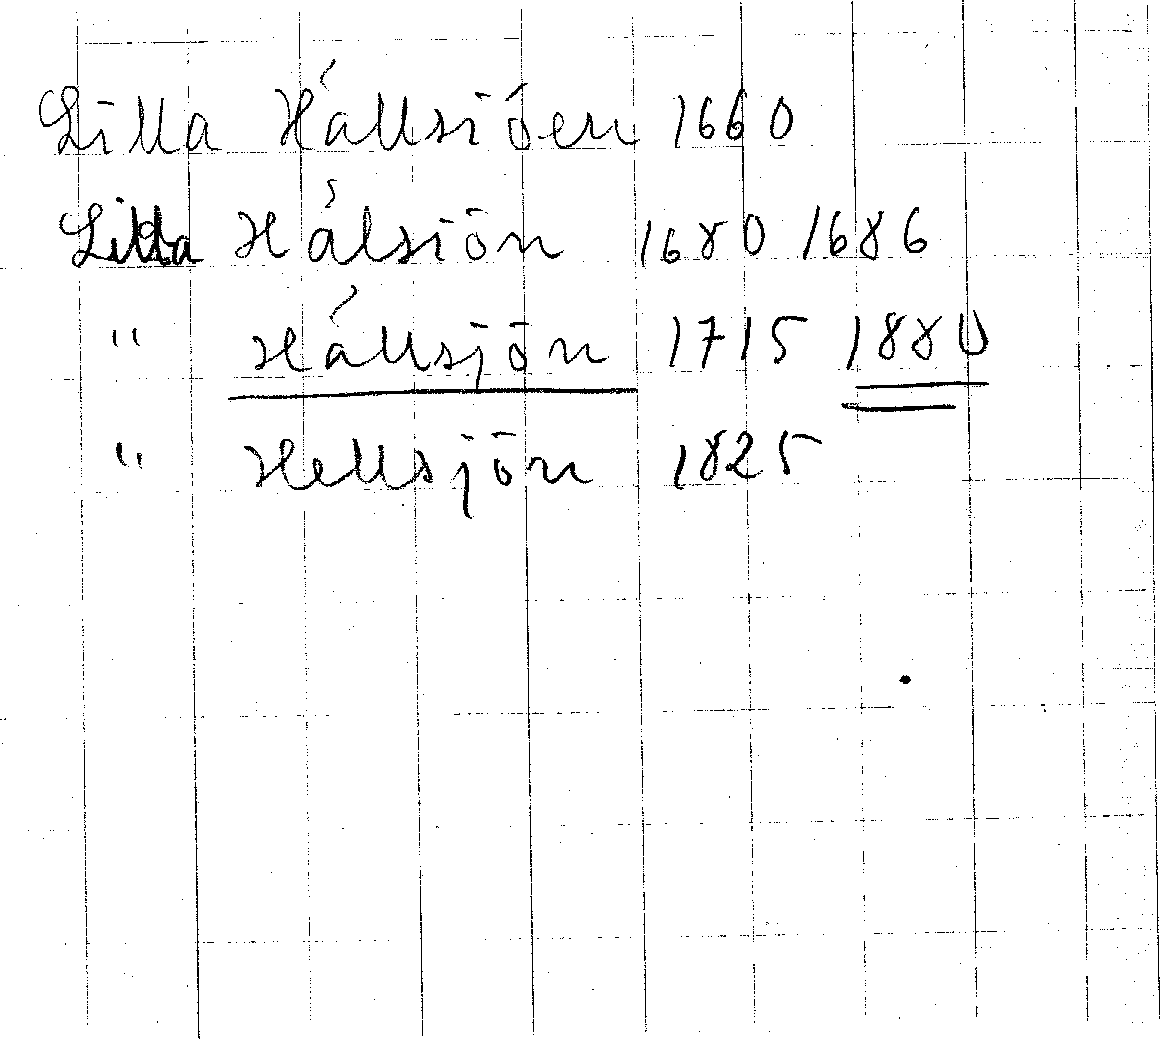 Lilla Hállsiöen 1660
Lilla Hálsiön 1680 1686
" Hállsjön 1715 1880
" Hellsjön 1825